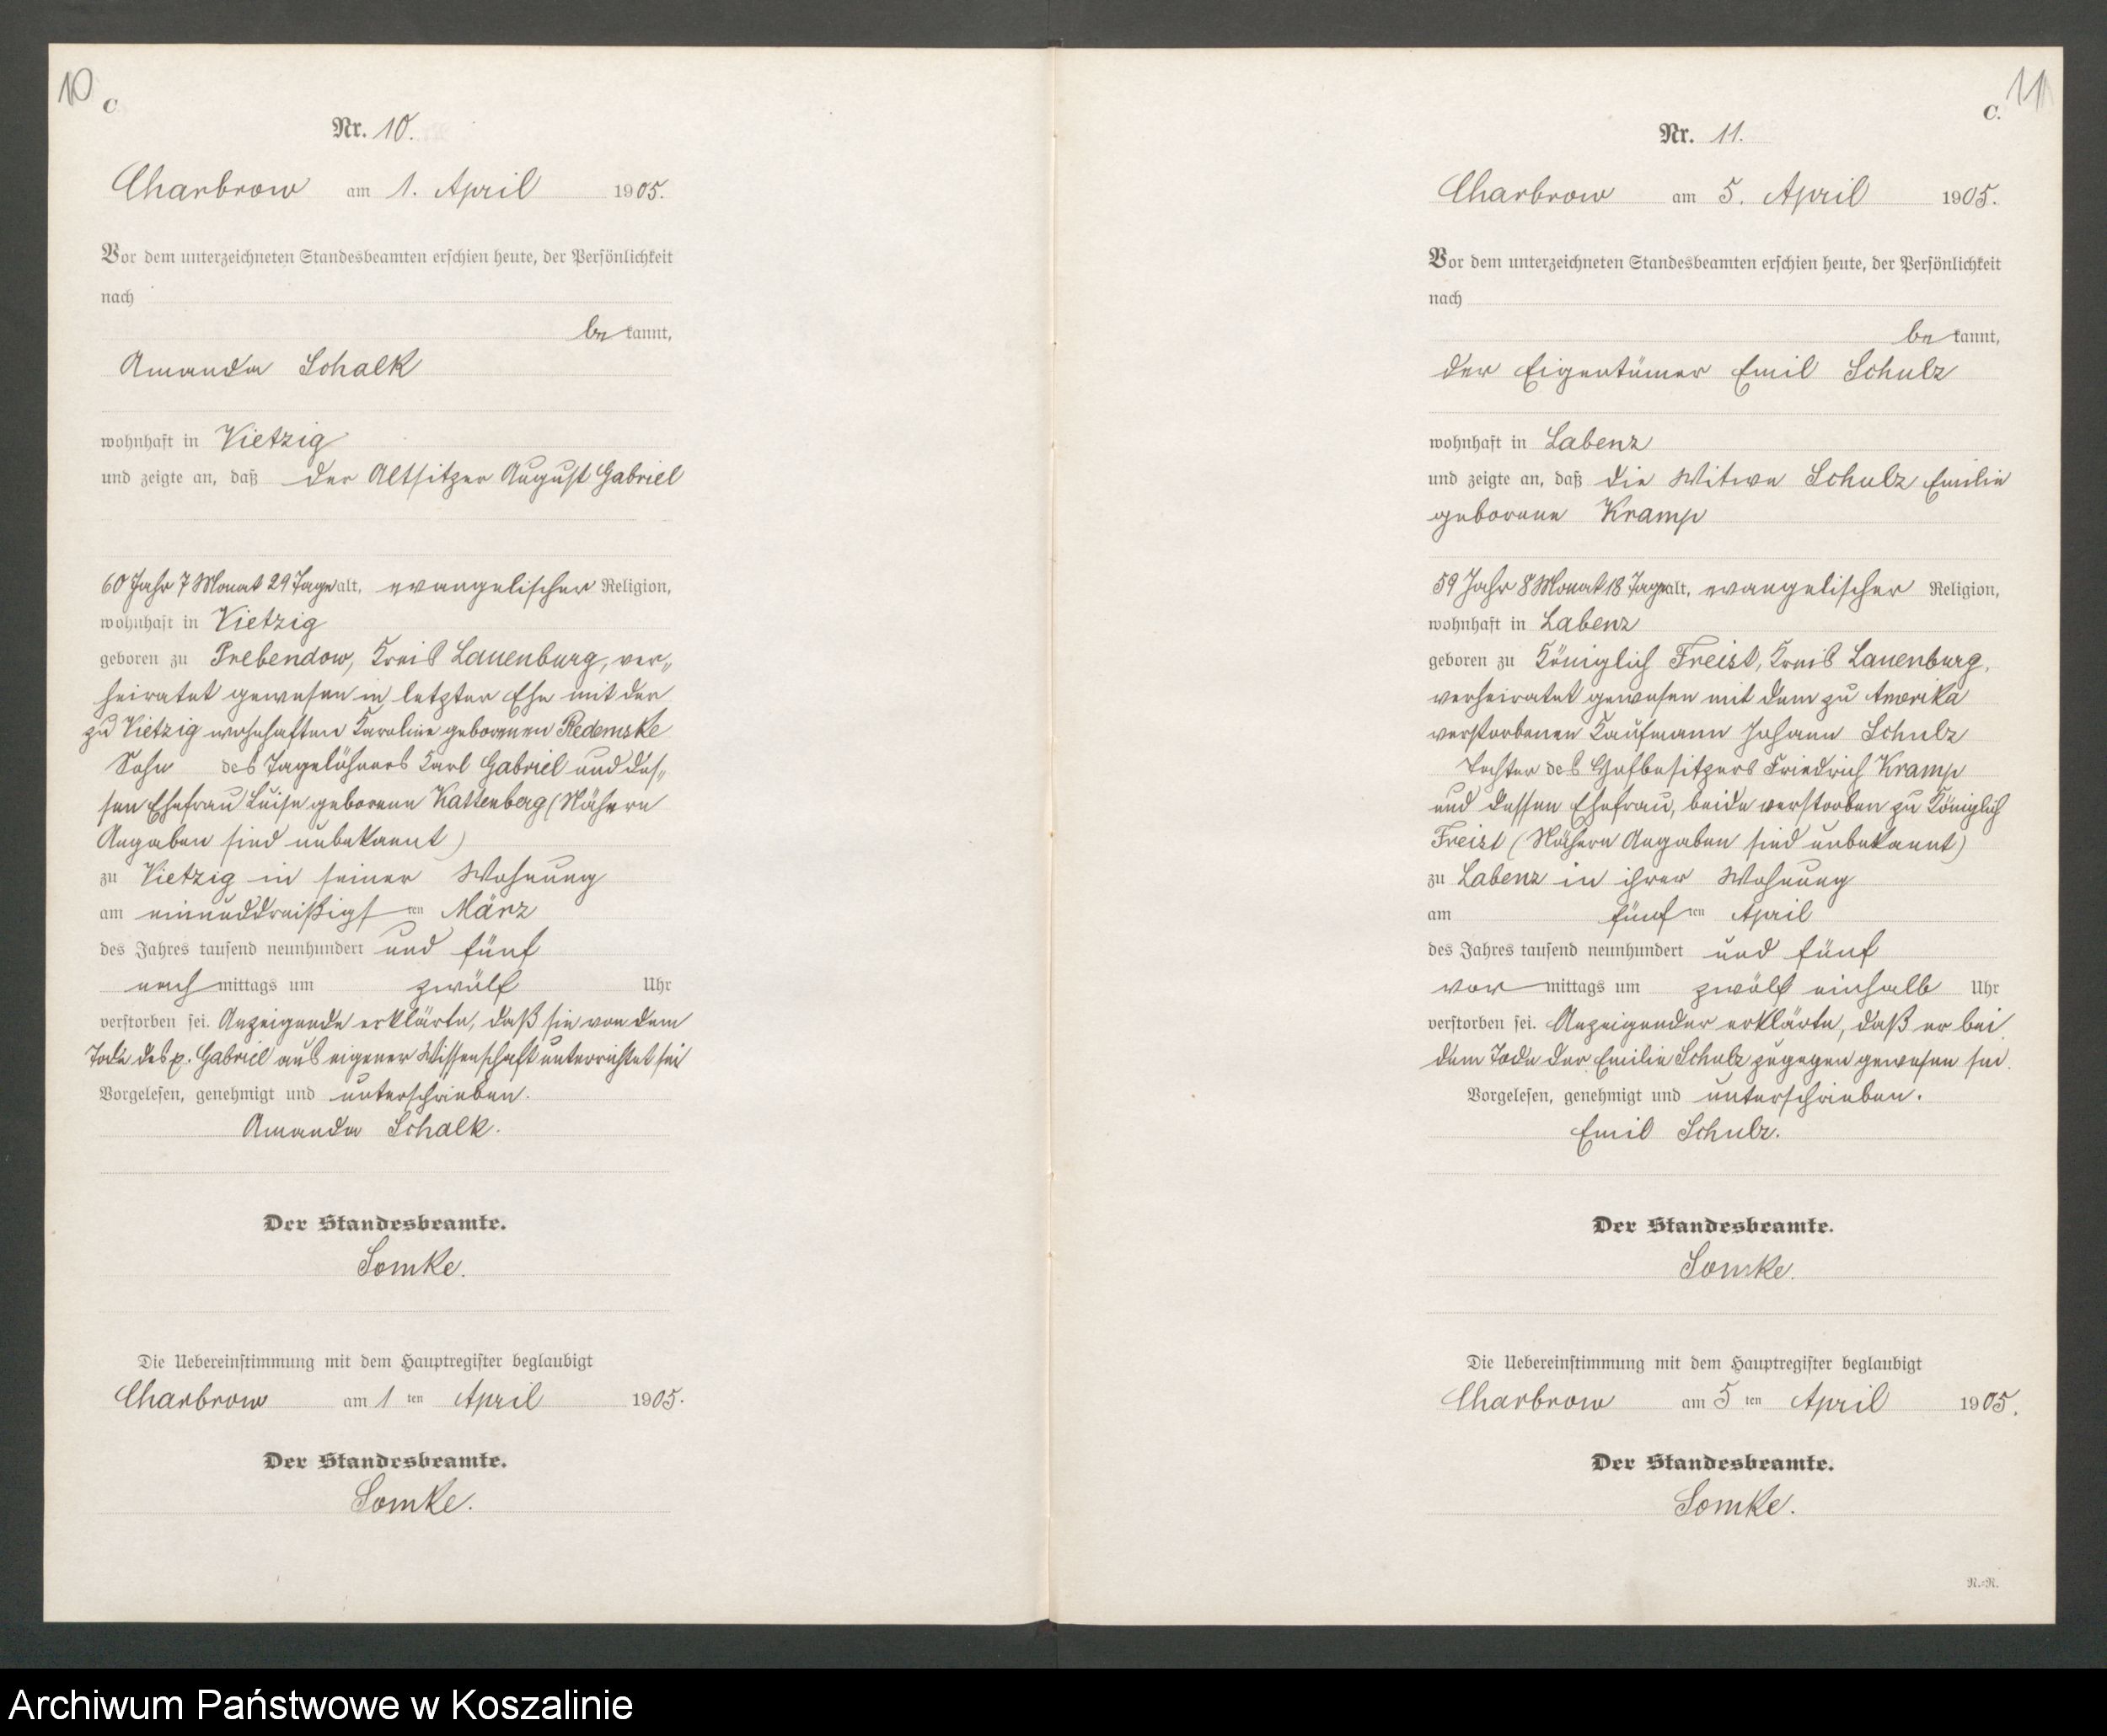 10
C
Nr. 10.
Charbrow am 1. April 1905.
Vor dem unterzeichneten Standesbeamten erschien heute, der Persönlichkeit
nach
bekannt,
Amanda Schalk
wohnhaft in Vietzig
und zeigte an, daß der Altsitzer August Gabriel
60 Jahr 7 Monat 29 Tage alt, evangelischer Religion,
wohnhaft in Vietzig
geboren zu Prebendow, Kreis Lauenburg, ver„
heiratet gewesen in letzter Ehe mit der
zu Vietzig wohnhaften Karoline geborenen Redemske
Sohn des Tagelöhners Karl Gabriel und des„
sen Ehefrau Luise geborene Kattenberg (Nähere
Angaben sind unbekannt)
zu Vietzig in seiner Wohnung
am einunddreißigsten März
des Jahres tausend neunhundert und fünf
nachmittags um zwölf Uhr
verstorben sei. Anzeigende erklärte, daß sie von dem
Tode des p. Gabriel aus eigener Wissenschaft unterrichtet sei
Vorgelesen, genehmigt und unterschrieben.
Amanda Schalk.
Der Standesbeamte.
Somke.
Die Uebereinstimmung mit dem Hauptregister beglaubigt
Charbrow am 1ten April 1905.
Der Standesbeamte.
Somke.
11
C.
Nr. 11.
Charbrow am 5. April 1905.
Vor dem unterzeichneten Standesbeamten erschien heute, der Persönlichkeit
nach
bekannt,
der Eigentümer Emil Schulz
wohnhaft in Labenz
und zeigte an, daß die Witwe Schulz Emilie
geborene Kramp
59 Jahr 8 Monat 18 Tage alt, evangelischer Religion,
wohnhaft in Labenz
geboren zu Königlich Freist, Kreis Lauenburg,
verheiratet gewesen mit dem zu Amerika
verstorbenen Kaufmann Johann Schulz
Tochter des Hofbesitzers Friedrich Kramp
und dessen Ehefrau, beide verstorben zu Königlich
Freist (Nähere Angaben sind unbekannt)
zu Labenz in ihrer Wohnung
am fünften April
des Jahres tausend neunhundert und fünf
vormittags um zwölf einhalb Uhr
verstorben sei. Anzeigender erklärte, daß er bei
dem Tode der Emilie Schulz zugegen gewesen sei.
Vorgelesen, genehmigt und unterschrieben.
Emil Schulz.
Der Standesbeamte.
Somke.
Die Uebereinstimmung mit dem Hauptregister beglaubigt
Charbrow am 5ten April 1905.
Der Standesbeamte.
Somke.
R.=R.
Archiwum Państwowe w Koszalinie